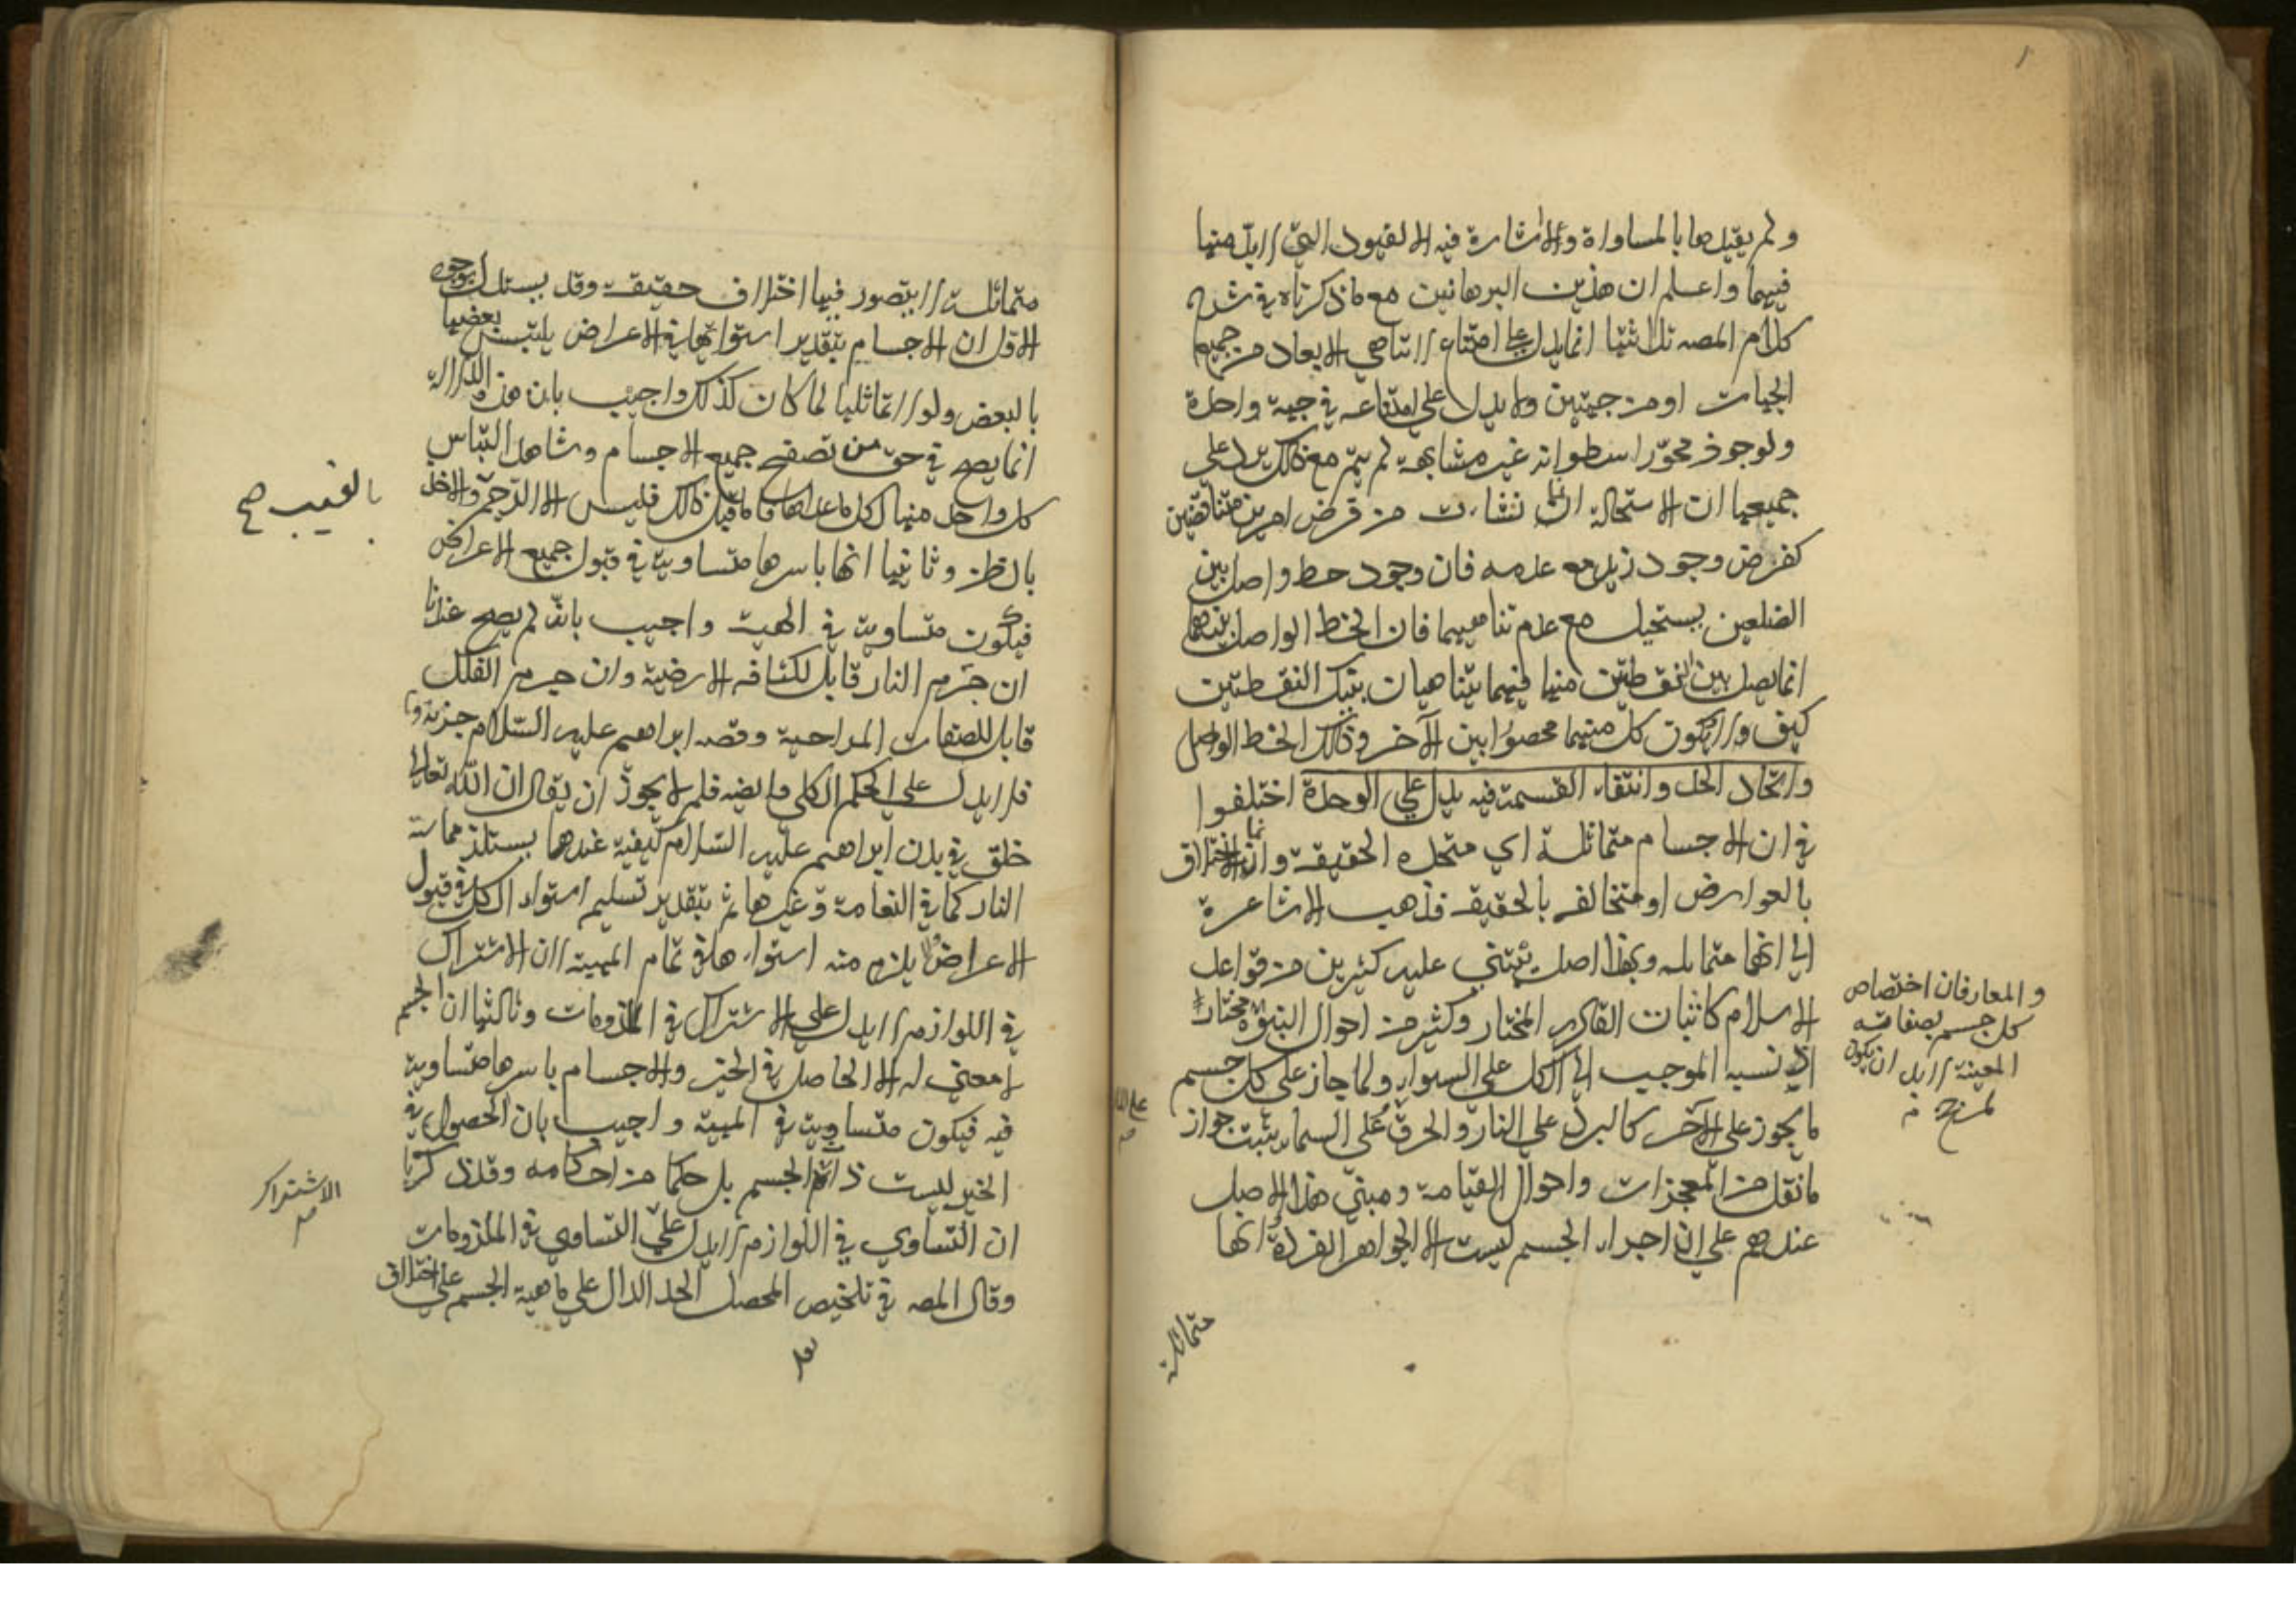 ولم يقيدها بالمساواة والاشارة فيه الى القيود التي لا بد منها
فيهما واعلم ان هذين البرهانين مع ما ذكرناه في شرح
كلام المصه ثلاثتها انما يدل على امتناع لا تناهي الابعاد من جميع
الجهات او من جهتين ولا يدل على امتناعه في جهة واحدة
ولو جوز مجوز اسطوانة غير متناهية لم يتم مع ذلك يرد على
جميعها ان الاستحالة انما نشأت من فرض امرين متناقضين
كفرض وجود زيد مع عدمه فان وجود خط واصل بين
الضلعين يستحيل مع عدم تناهيهما فان الخط الواصل بينهما
انما يصل بين النقطتين منهما فهما يتناهيان بتيك النقطتين
كيف ولا يكون كل منهما محصورا بين الآخر وذلك الخط الواصل
واتحاد الحد وانتفاء القسمة فيه يدل على الوحدة اختلفوا
في ان الاجسام متماثلة اي متحدة الحقيقة وانما الاختلاف
بالعوارض او متخالفة بالحقيقة فذهب الاشاعرة
الى انها متماثلة وهذا اصل يبتني عليه كثير من قواعد
الاسلام كاثبات القادر المختار وكثير من احوال النبوة
والمعاد فان اختصاص
كل جسم بصفاته
المعينة لا بد ان يكون
لمرجح
مختار
اذ نسبة الموجب الى الكل على السواء ولما جاز على كل جسم
ما يجوز على الآخر كالبرد على النار والخرق على السماء يثبت جواز
ما نقل من المعجزات واحوال القيامة ومبنى هذا الاصل
عندهم على ان اجزاء الجسم ليست الا الجواهر الفردة انها
متماثلة
متماثلة لا يتصور فيها اختلاف حقيقة وقد يستدل بوجوه
الاول ان الاجسام بتقدير استوائها في الاعراض يلتبس بعضها
بالبعض ولولا تماثلها لما كان كذلك واجيب بان هذه الدلالة
انما يصح في حق من تصفح جميع الاجسام وشاهد التباس
كل واحد منها لكل ما عداها فاما قبل ذلك فليس الا الرجم
بالغيب صح
والاخذ
بالظن وثانيها انها باسرها متساوية في قبول جميع الاعراض
فيكون متساوية في المهية واجيب بانه لم يصح عندنا
ان جرم النار قابل لكثافة الارضية وان جرم الفلك
قابل للصفات المزاجية وقصة ابراهيم عليه السلام جزئية
فلا يدل على الحكم الكلي وايضه فلم لا يجوز ان يقال ان الله تعالى
خلق في بدن ابراهيم عليه السلام كيفية عندها يستلذ مماسة
النار كما في النعامة وغيرها ثم بتقدير تسليم استواء الكل في قبول
الاعراض لا يلزم منه استواءها في تمام المهية لان الاشتراك
في اللوازم لا يدل على الاشتراك في الملزومات وثالثها ان الجسم
لا معنى له الا الحاصل في الحيز والاجسام باسرها متساوية
فيه فيكون متساوية في المهية واجيب بان الحصول في
الحيز ليست ذات الجسم بل حكما من احكامه وقد ذكرنا
الاشتراك
ان التساوي في اللوازم لا يدل على التساوي في الملزومات
وقال المصه في تلخيص المحصل الحد الدال على ماهية الجسم على اختلاف